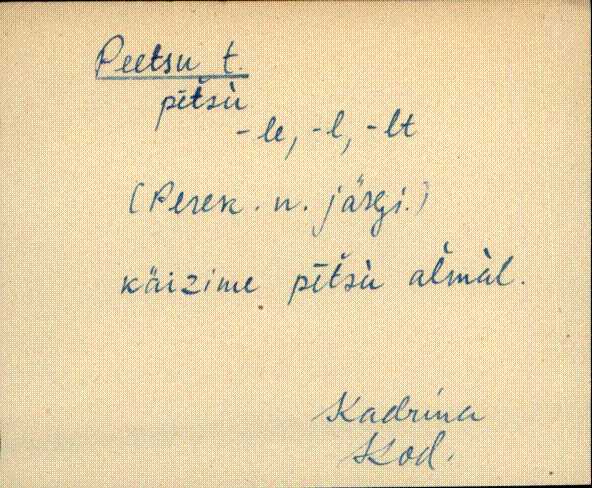 Peetsu t.
pītšù
-le, -l, -lt
(Perek. n. järgi.)
käizime pītšù almàl.
Kadrina
Kod.